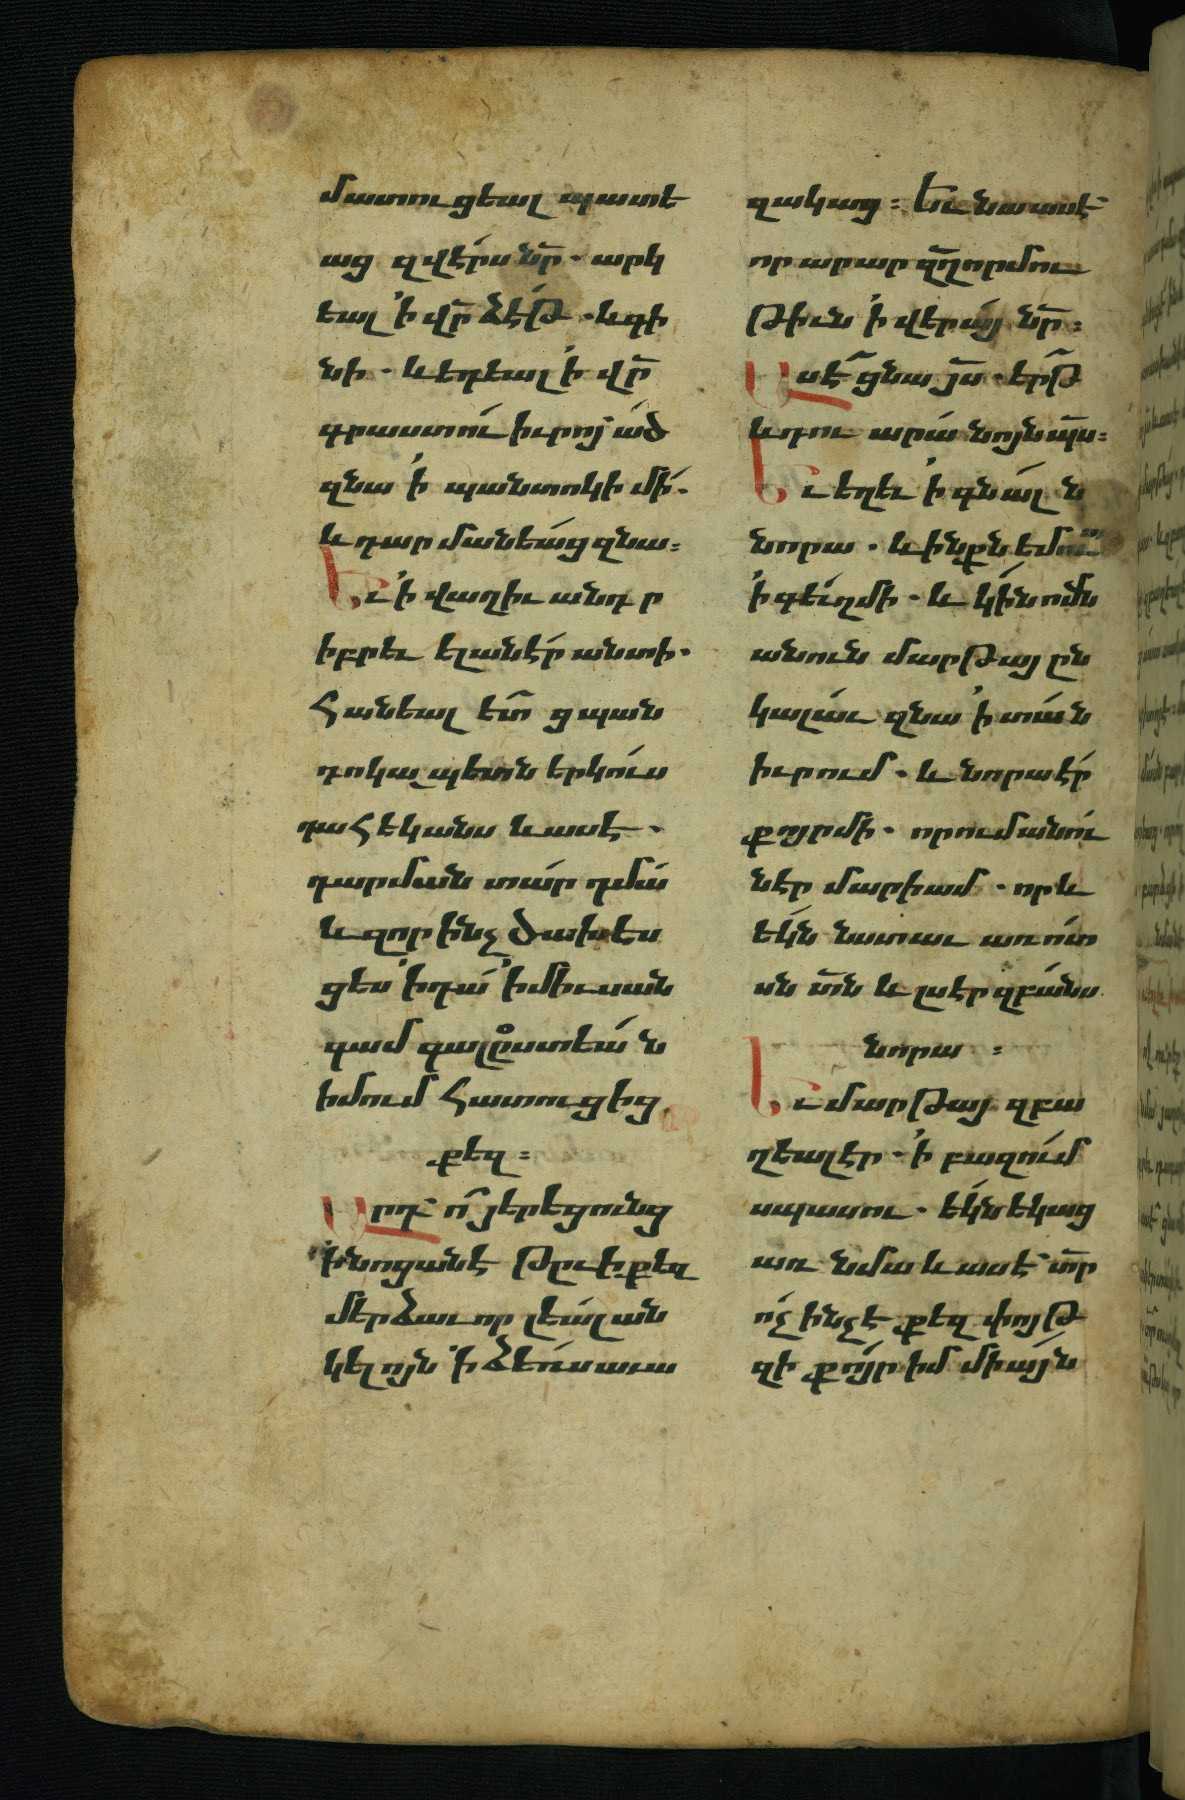 մատուցեալ պատե
աց զվէրս նր̃ ․ արկ
եալ ՛ի վր̃ ձէ՛թ ․ և գի
նի ․ և եդեալ ՛ի վր̃
գրաստու՛ իւրոյ ա՛ծ
զնա ՛ի պանտոկի մի՛ ․
և դարմանեա՛ց զնա ։
Եւ ՛ի վաղիւ անդ ր
իբրեւ ելանէր անտի ․
Հանեալ ետ̃ ց պան
դոկապետն երկու՛ս
դահեկանս և ասէ ․
դարման տա՛ր դմա՛
և զոր ինչ ծախես
ցես ՛ի դա՛ ՛ի միւսան
գամ գալըստեա՛ն
իմում հատուցից
քեզ ։
Արդ՝ ո̃ յերեցունց
՛ի նոցանէ թըւի քեզ
մերձաւոր լեալ ան
կելոյն ՛ի ձե՛ռս աւա
զակաց ։ Եւ նա ասէ՝
որ արար զո̃ղորմու
թիւն ՛ի վերա՛յ նր̃ ։
Ասէ̃ ցնա յ̃ս ․ երթ̃
և դու արա՛ նոյնպ̃ս ։
Եւ եղեւ ՛ի գնալ ն
նորա ․ և ինքն եմուտ
՛ի գեւղ մի ․ և կին ոմն
անուն մարթայ ըն
կալաւ զնա ՛ի տան
իւրում ․ և նորա էր
քոյր մի ․ որում անու
նէր մարիամ ․ որ և
եկն նստաւ առ ոտ
սն տ̃ն և լսէր զբանս
նորա ։
Եւ մարթայ զբա
ղեալ էր ․ ՛ի բազում
սպասու ․ եկն եկաց
առ նմա և ասէ՝ տ̃ր
ո՛չ ինչ է քեզ փոյթ
զի քոյր իմ միայն